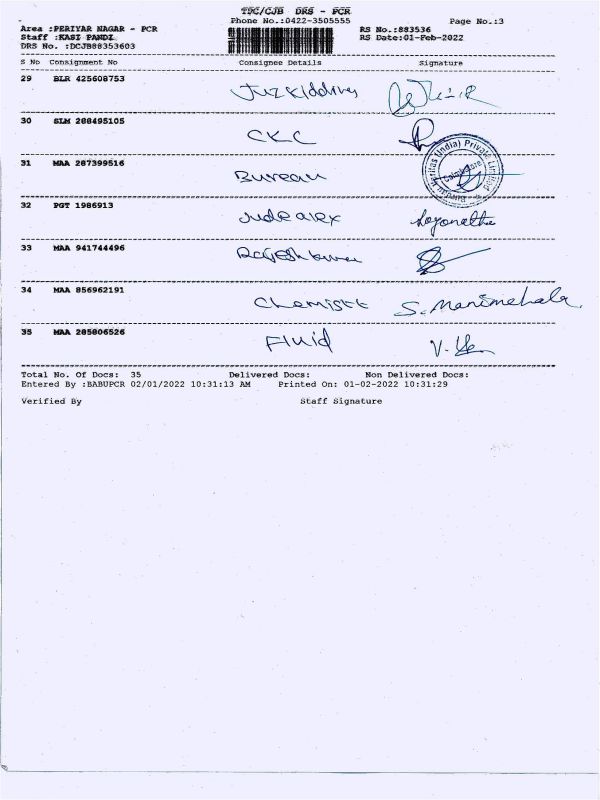 TPC/CJB DRS - PCR
Phone No.:0422-3505555 Page No.:3
Area :PERIYAR NAGAR - PCR RS No.:883536
Staff :KASI PANDI RS Date:01-Feb-2022
DRS No. :DCJB88353603
S No Consignment No Consignee Details Signature
29 BLR 425608753
30 SLM 288495105 CKC
31 MAA 287399516 Bureau
(India) Private Limited
Coimbatore
32 PGT 1986913 Jude alex Loganatha
33 MAA 941744496 Rajesh kumar
34 MAA 856962191 Chemistt S. Manimehala
35 MAA 285806526 Fluid
Total No. Of Docs: 35 Delivered Docs: Non Delivered Docs:
Entered By :BABUPCR 02/01/2022 10:31:13 AM Printed On: 01-02-2022 10:31:29
Verified By Staff Signature